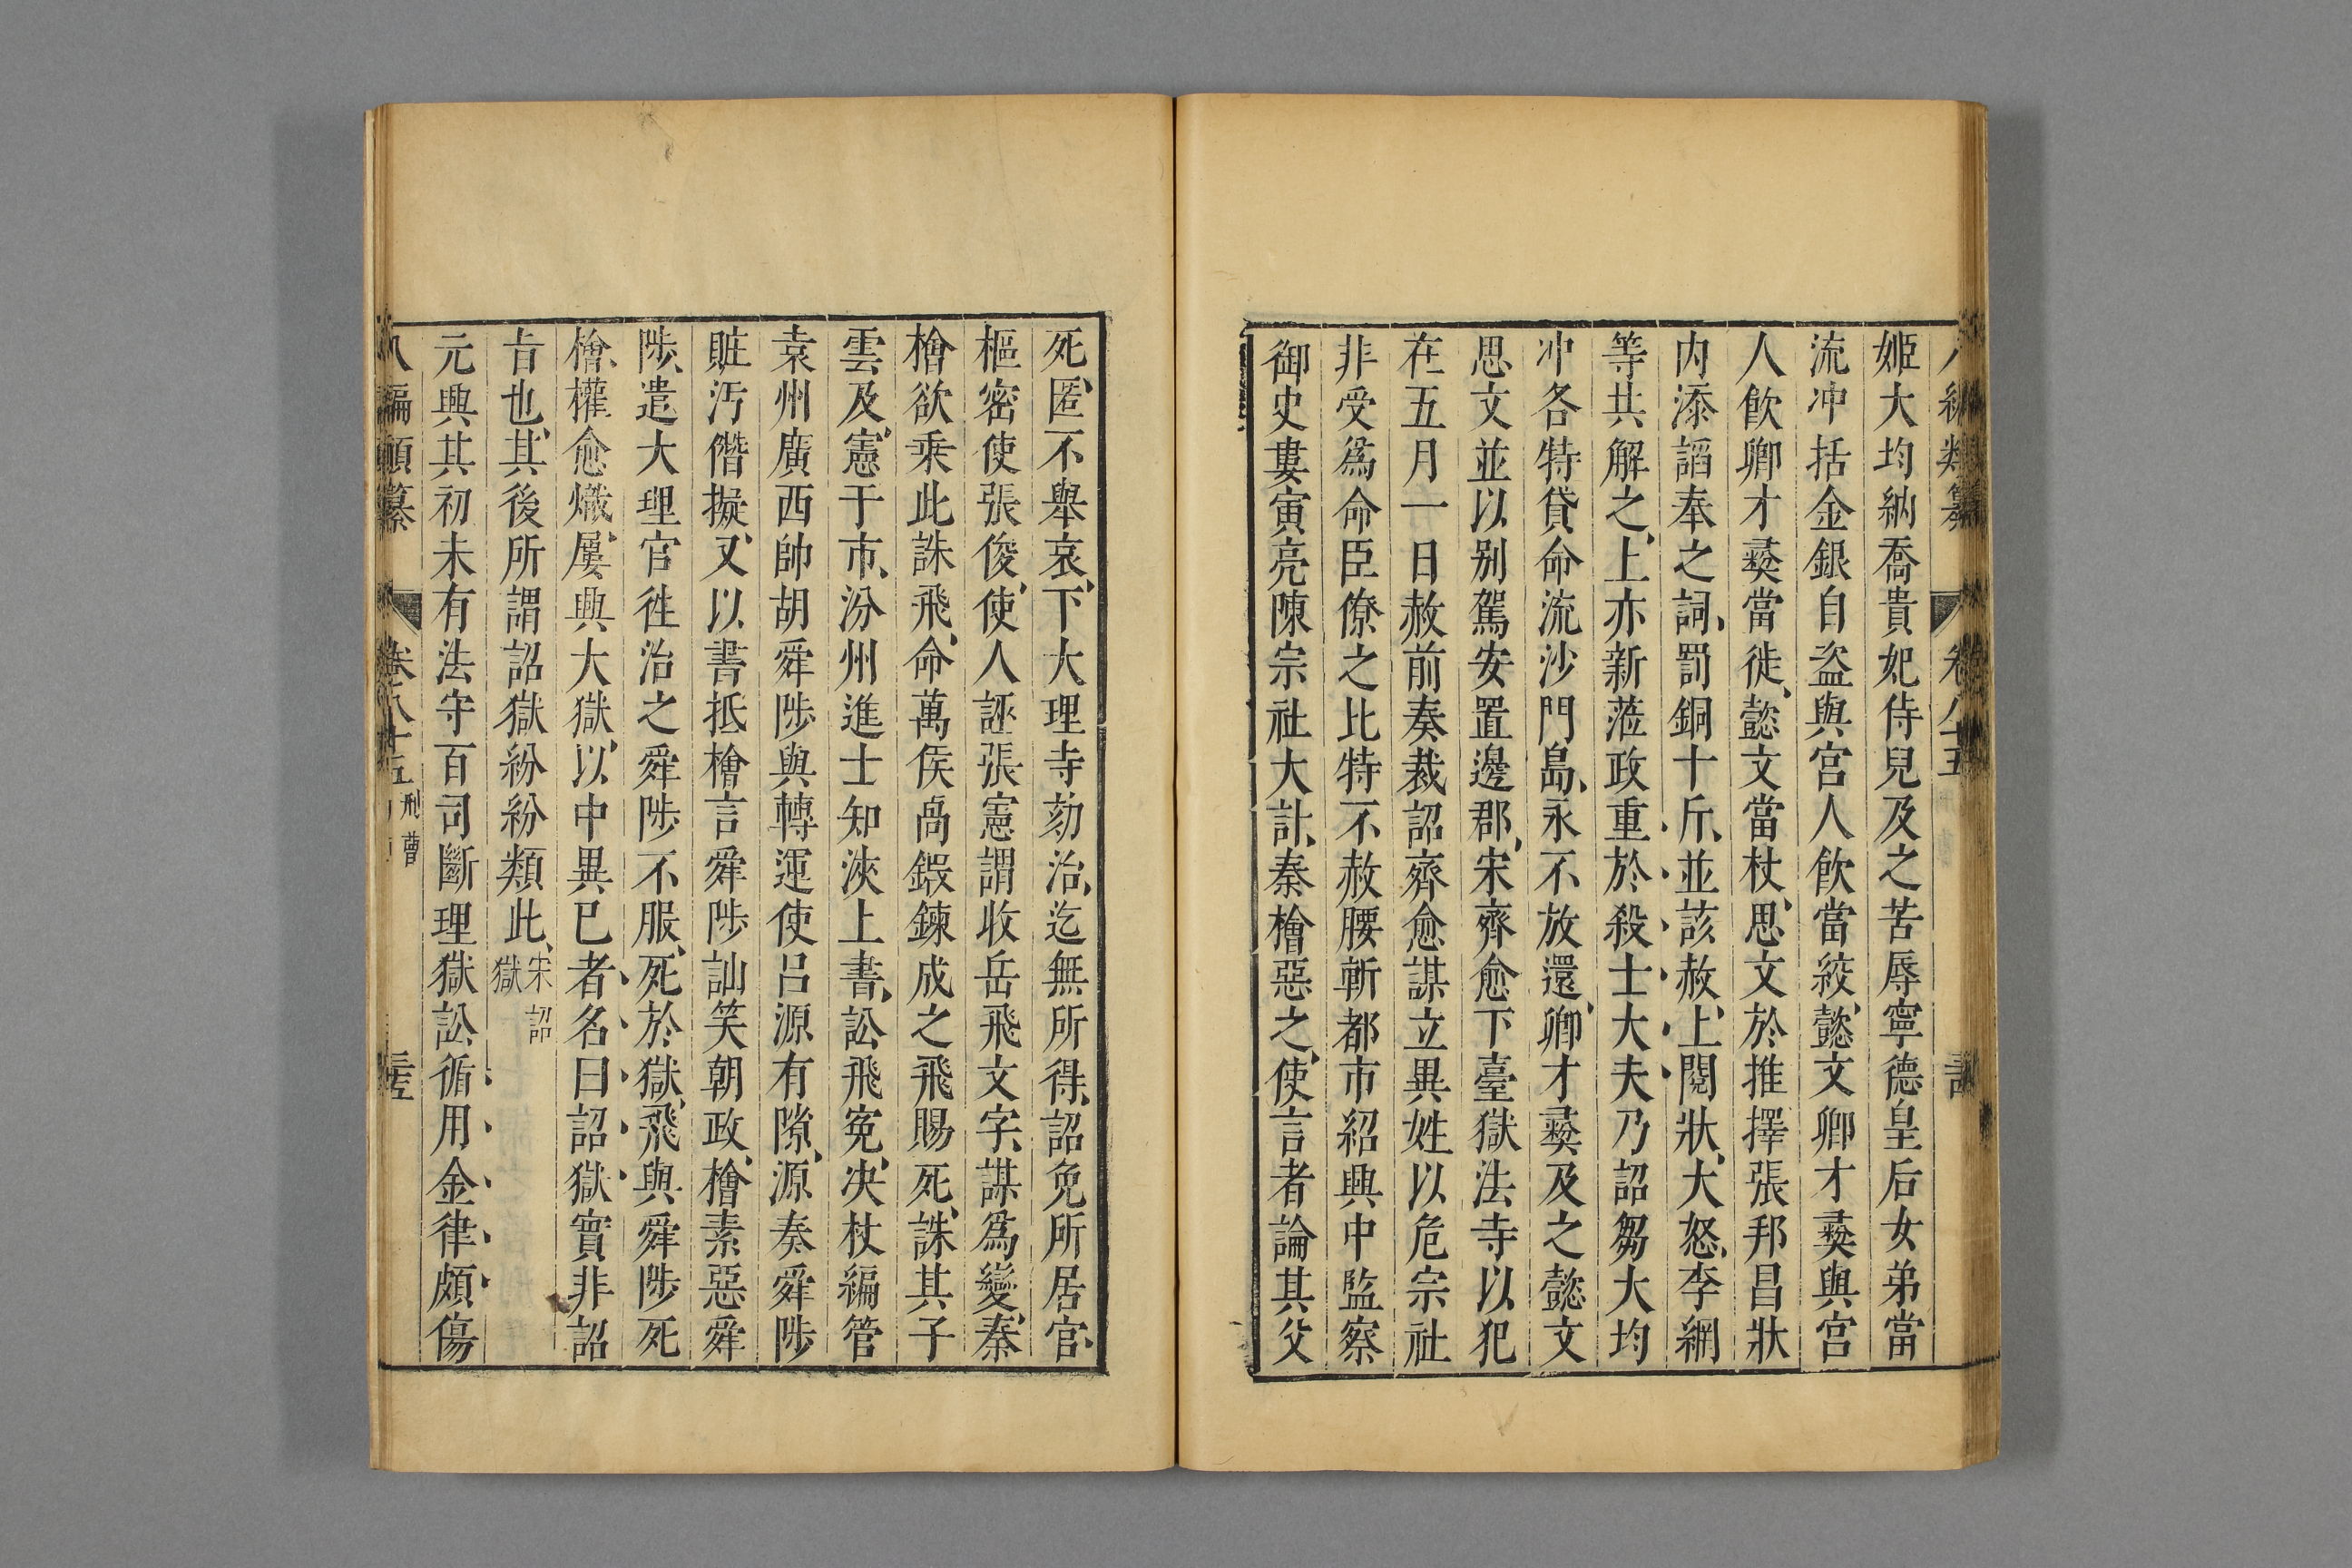 姬大均納喬貴妃侍兒及之苦辱寧德皇后女弟當
流冲括金銀自盜與宫人飲當絞懿文卿才彞與宫
人飲卿才彞當徙懿文當杖思文於推擇張邦昌狀
内添謟奉之詞罰銅十斤並該赦上閱狀大怒李綱
等共解之上亦新蒞政重於殺士大夫乃詔芻大均
冲各特貸命流沙門島永不放還卿才彞及之懿文
思文並以别駕安置邊郡宋齊愈下臺獄法寺以犯
在五月一日赦前奏裁詔齊愈謀立異姓以危宗社
非受爲命臣僚之比特不赦腰斬都市紹興中監察
御史婁寅亮陳宗社大計秦檜惡之使言者論其父
死匿不舉哀下大理寺劾治迄無所得詔免所居官
樞密使張俊使人誣張憲謂收岳飛文字謀爲變秦
檜欲乗此誅飛命萬俟卨鍜鍊成之飛賜死誅其子
雲及憲于市汾州進士知浹上書訟飛寃决杖編管
袁州廣西帥胡舜陟與轉運使吕源有隙源奏舜陟
賍汚僭擬又以書抵檜言舜陟訕笑朝政檜素惡舜
陟遣大理官徃治之舜陟不服死於獄飛與舜陟死
檜權愈熾屢興大獄以中異已者名曰詔獄實非詔
㫖也其後所謂詔獄紛紛類此宋詔獄
元興其初未有法守百司斷理獄訟循用金律頗傷
八編類纂 卷八十五 刑曹